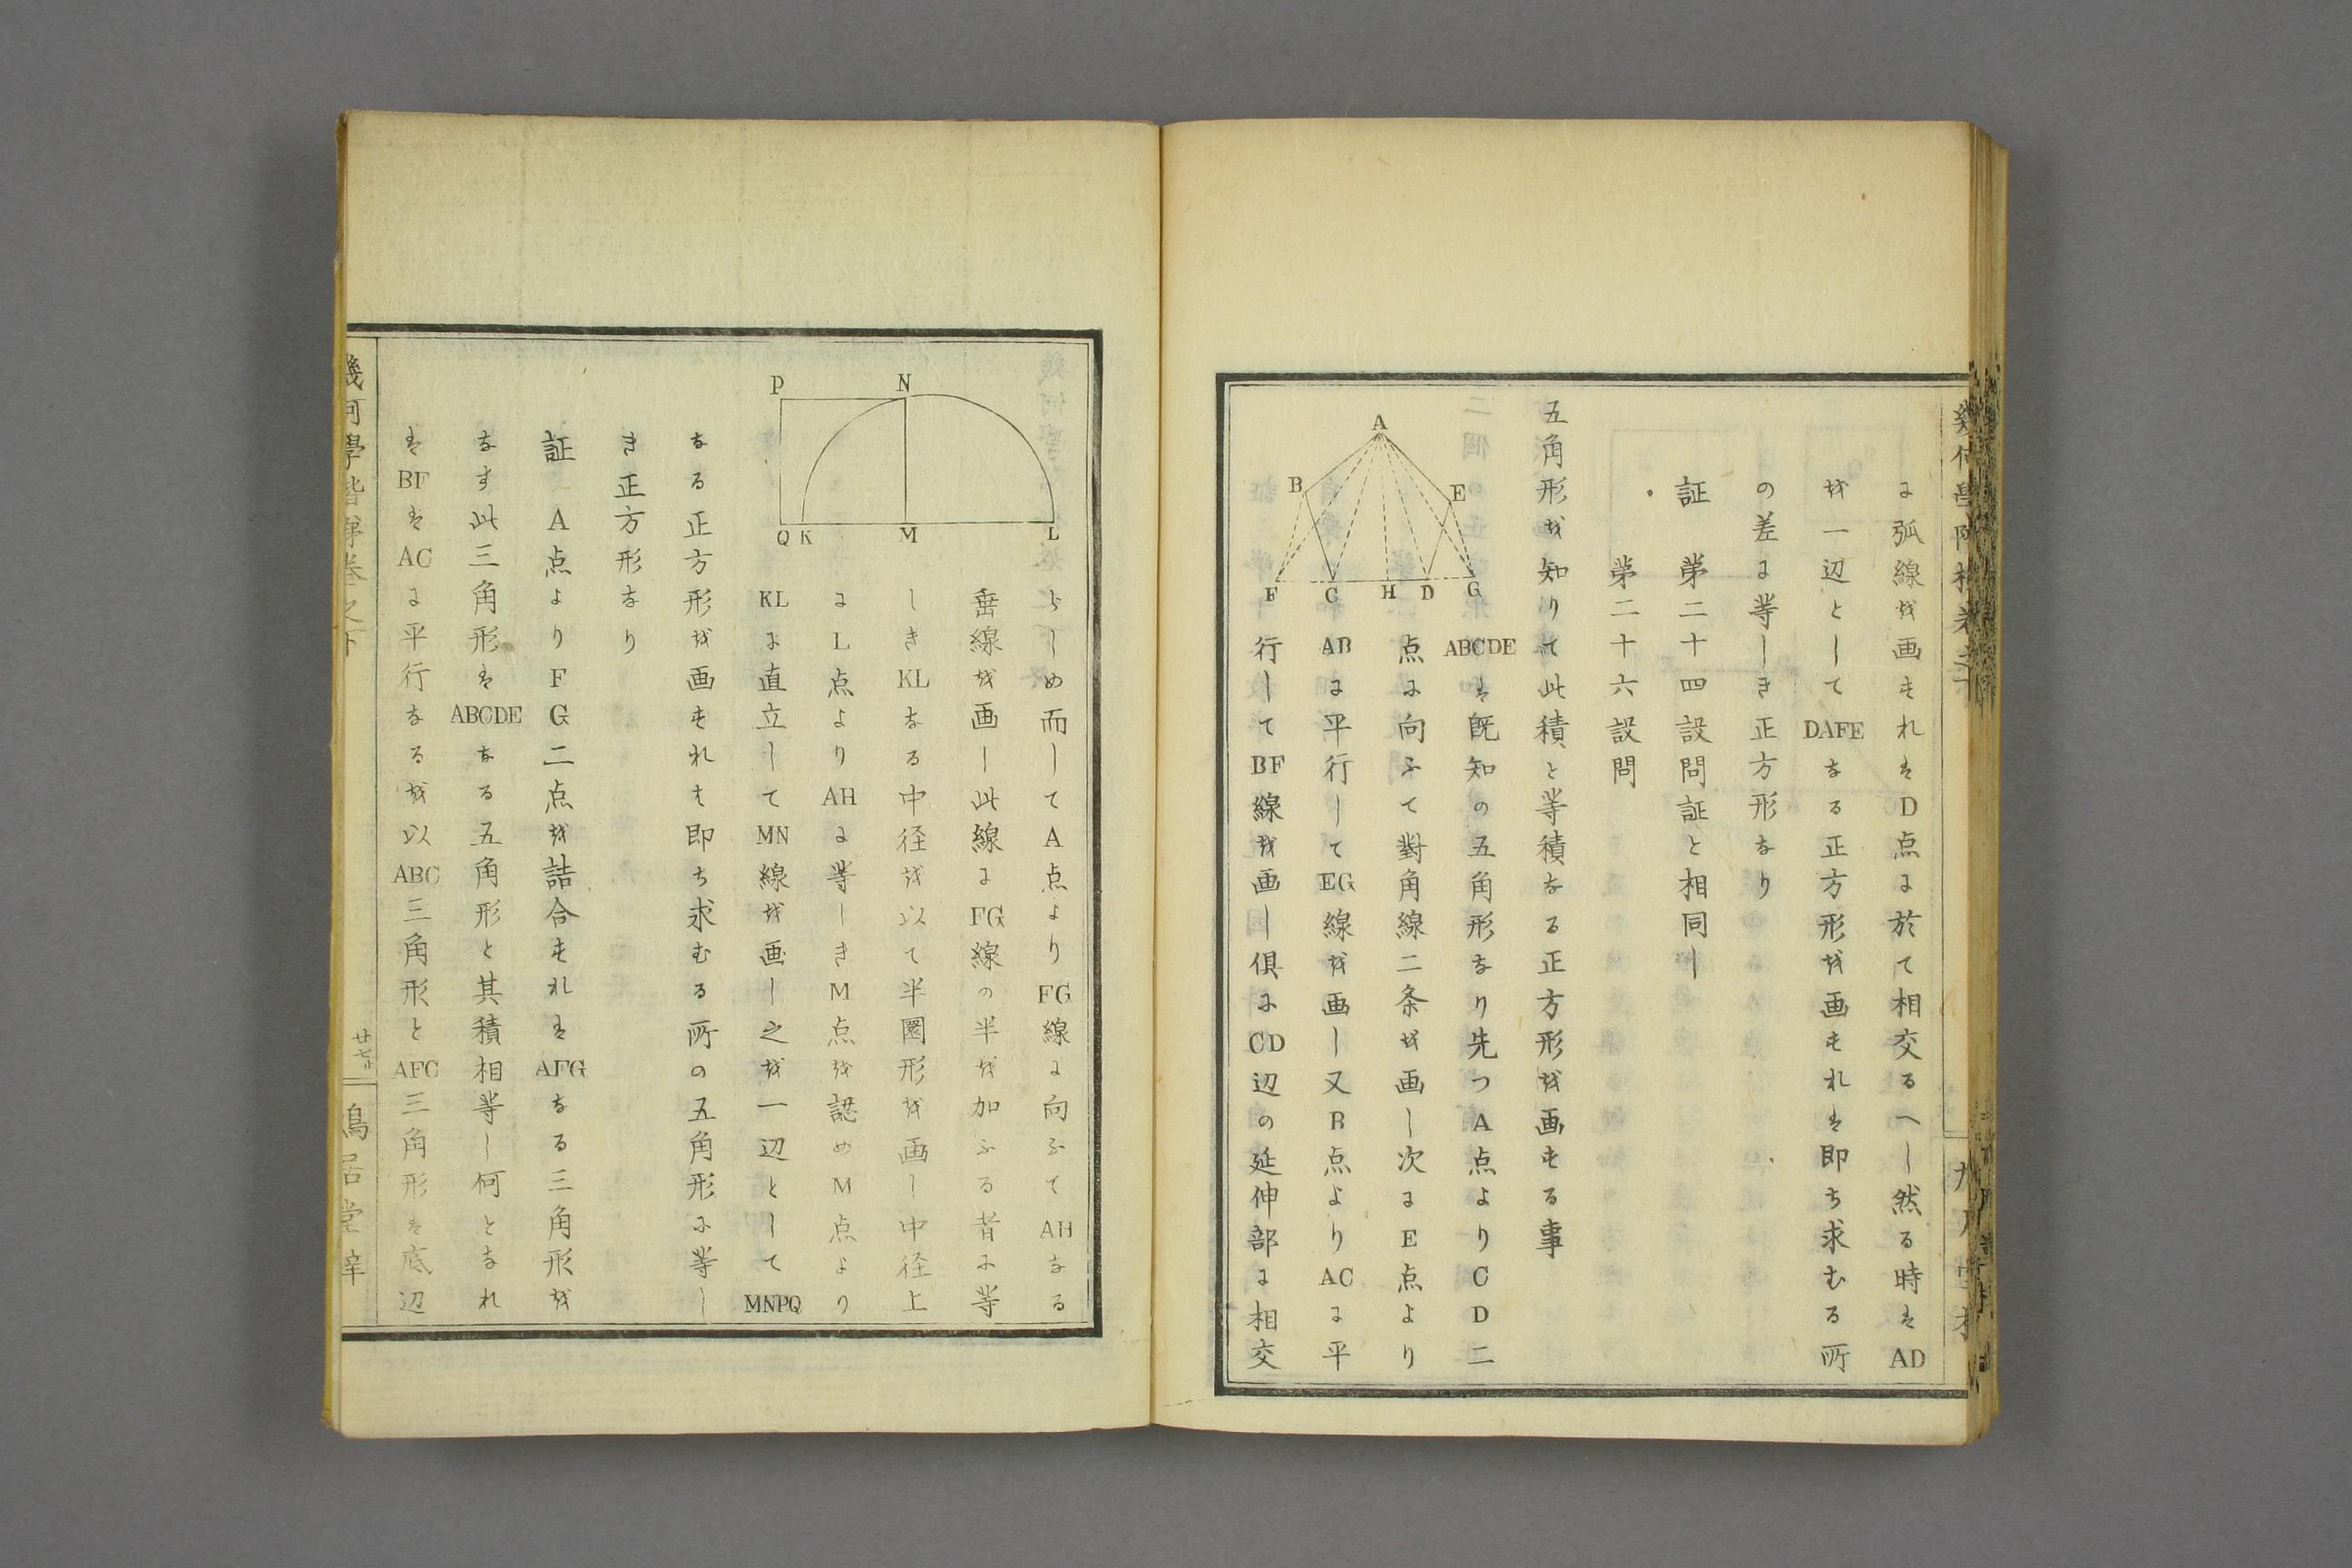 に弧線を画すればD点に於て相交るへし然る時はAD
を一辺としてDAFEなる正方形を画すれば即ち求むる所
の差に等しき正方形なり
証　第二十四設問証と相同し
第二十六設問
五角形を知りて此積と等積なる正方形を画する事
A
B
E
F
C
H
D
G
ABCDEは既知の五角形なり先つA点よりCD二
点に向ふて對角線二条を画し次にE点より
ABに平行してEG線を画し又B点よりACに平
行してBF線を画し俱にCD辺の延伸部に相交
らしめ而してA点よりFG線に向ふてAHなる
垂線を画し此線にFG線の半を加ふる者に等
しきKLなる中径を以て半圏形を画し中径上
にL点よりAHに等しきM点を認めM点より
P
N
Q
K
M
L
KLに直立してMN線を画し之を一辺としてMNPQ
なる正方形を画すれは即ち求むる所の五角形に等し
き正方形なり
証　A点よりFG二点を詰合すればAFGなる三角形を
なす此三角形はABCDEなる五角形と其積相等し何となれ
はBFはACに平行なるを以ABC三角形とAFC三角形は底辺
幾何學階梯巻之下
廿七